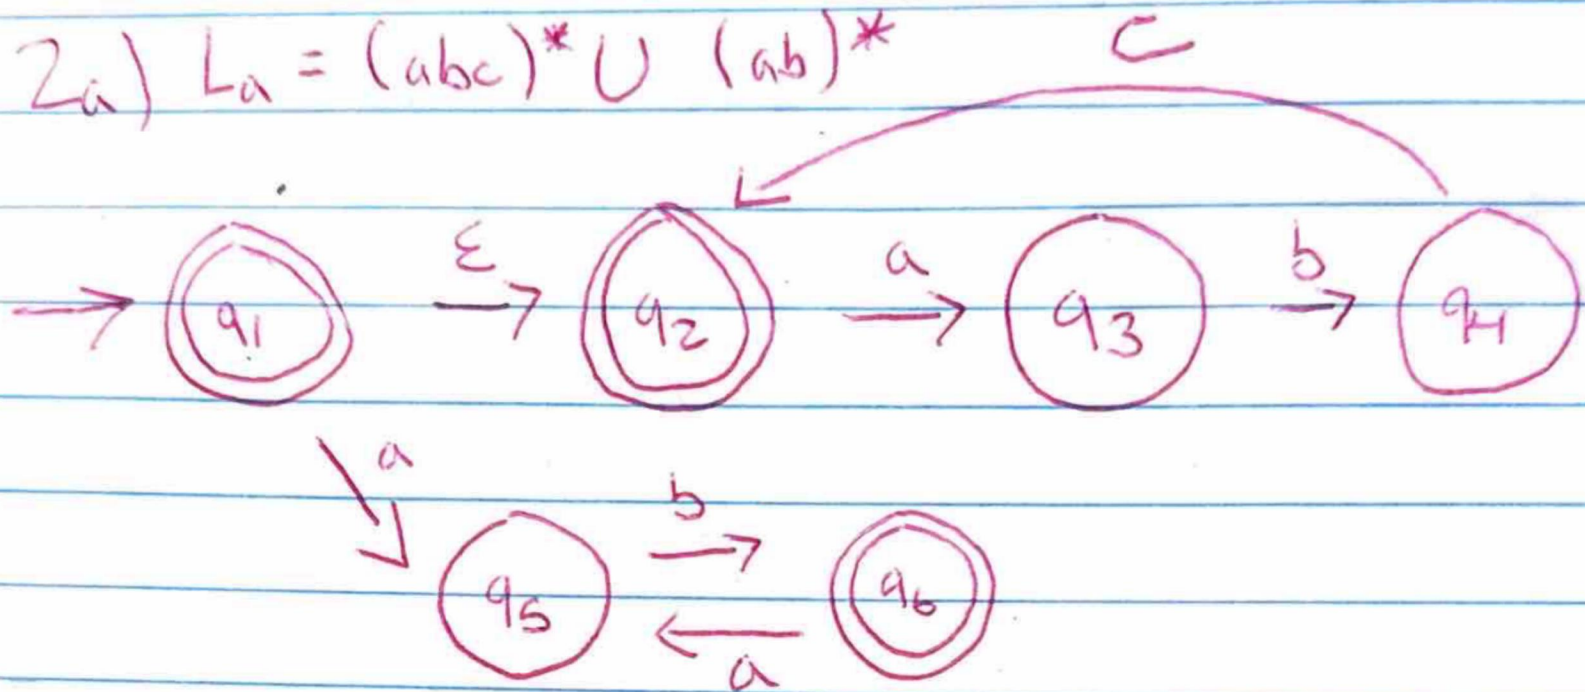 2a) La = (abc)* U (ab)*
C
q1 ε q2 a q3 b q4
a
b
q5 q6
a